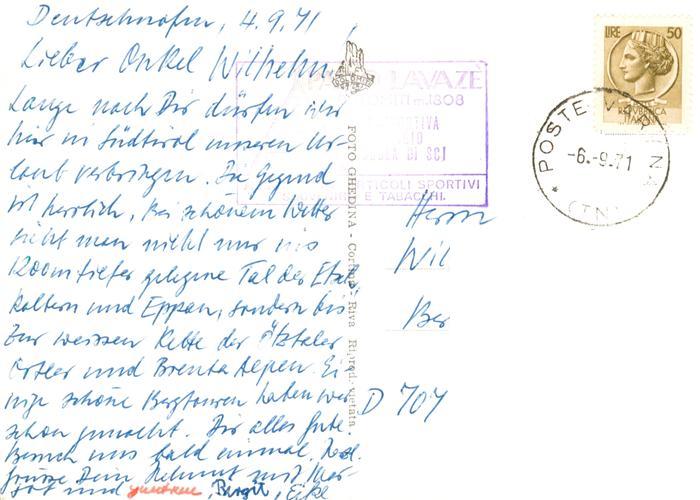 Deutschnofen, 4.9.71
Lieber Onkel Wilhelm,
Lange nach Dir dürfen wir
hier in Südtirol unseren Ur-
laub verbringen. Die Gegend
ist herrlich, bei schönem Wetter
sieht man nicht nur ins
1200m tiefer gelegene Tal der Etsch
Kaltern und Eppan, sondern bis
zur weissen Kette der Ötztaler
Ortler und Brenta Alpen. Ei-
nige schöne Bergtouren haben wir
schon gemacht. Dir alles Gute.
Besuch uns bald einmal. Herzl.
grüsse Dein Helmut mit Mar-
got und Birgit, Eike
FOTO GHEDINA - Cortina - Riva Riprod. vietata
LAVAZE
m. 1808
DI SCI
ARTICOLI SPORTIVI
E TABACCHI
LIRE 50
POSTE
-6.-9.71
(TN)
Herrn
Wil
Ber
D 707